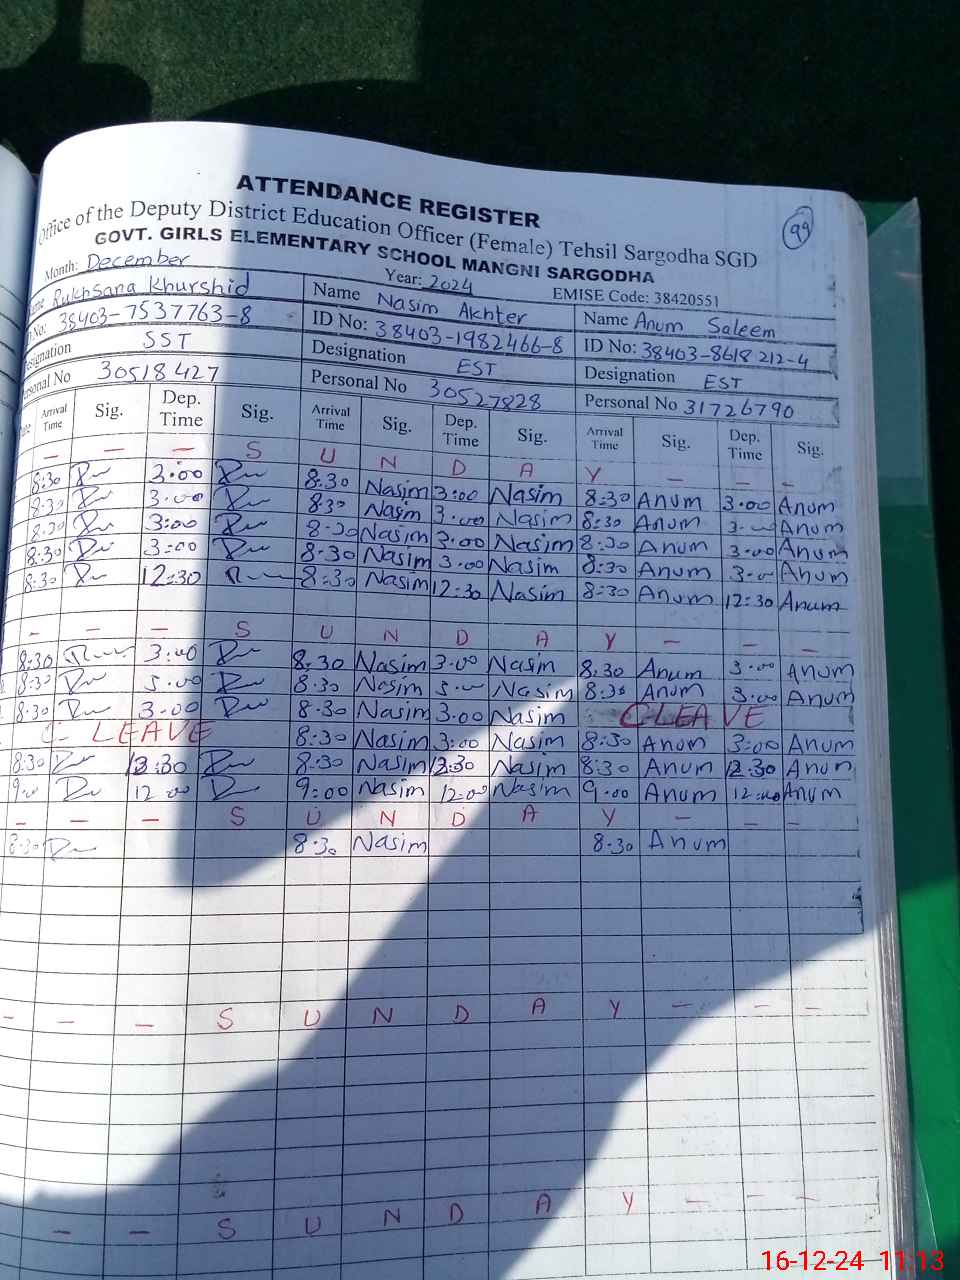 ATTENDANCE REGISTER
99
Office of the Deputy District Education Officer (Female) Tehsil Sargodha SGD
GOVT. GIRLS ELEMENTARY SCHOOL MANGNI SARGODHA
Month: December Year: 2024 EMISE Code: 38420551
Rukhsana Khurshid Name Nasim Akhter Name Anum Saleem
No: 38403-7537763-8 ID No: 38403-1982466-8 ID No: 38403-8618212-4
Designation SST Designation EST Designation EST
Personal No 30518427 Personal No 30527828 Personal No 31726790
Arrival Time Sig. Dep. Time Sig. Arrival Time Sig. Dep. Time Sig. Arrival Time Sig. Dep. Time Sig.
— — — S U N D A Y — — —
8:30 3:00 8:30 Nasim 3:00 Nasim 8:30 Anum 3:00 Anum
8:30 3:00 8:30 Nasim 3:00 Nasim 8:30 Anum 3:00 Anum
8:30 3:00 8:30 Nasim 3:00 Nasim 8:30 Anum 3:00 Anum
8:30 3:00 8:30 Nasim 3:00 Nasim 8:30 Anum 3:00 Anum
8:30 12:30 8:30 Nasim 12:30 Nasim 8:30 Anum 12:30 Anum
— — — S U N D A Y — — —
8:30 3:00 8:30 Nasim 3:00 Nasim 8:30 Anum 3:00 Anum
8:30 8:30 Nasim Nasim 8:30 Anum 3:00 Anum
8:30 3:00 8:30 Nasim 3:00 Nasim C LEAVE
C- LEAVE 8:30 Nasim 3:00 Nasim 8:30 Anum 3:00 Anum
8:30 8:30 Nasim Nasim 8:30 Anum 12:30 Anum
9:00 12:00 9:00 Nasim 12:00 Nasim 9:00 Anum 12:00 Anum
— — — S U N D A Y — — —
8:30 8:30 Nasim 8:30 Anum
— — — S U N D A Y — — —
— — S U N D A Y — — —
16-12-24 11:13